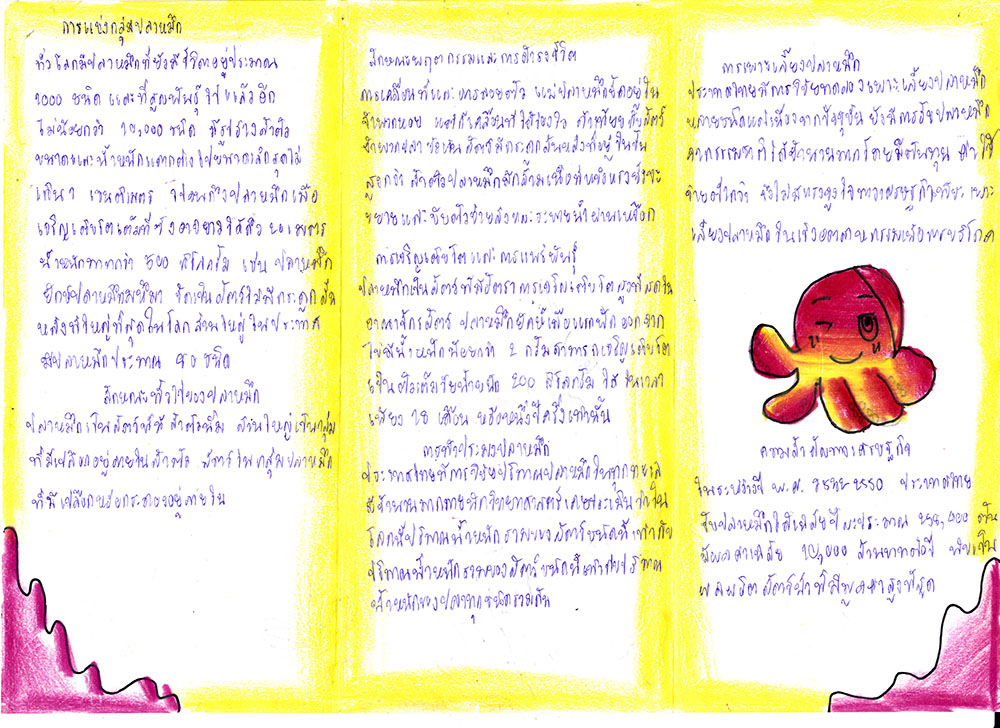 การแบ่งกลุ่มปลาหมึก
ทั่วโลกมีปลาหมึกที่ยังมีชีวิตอยู่ประมาณ
1000 ชนิด และที่สูญพันธุ์ไปแล้วอีก
ไม่น้อยกว่า 10,000 ชนิด มีรูปร่างลำตัว
ขนาดและน้ำหนักแตกต่างไปขนาดเล็กสุดไม่
เกิน 1 เซนติเมตร จนถึงปลาหมึกเมื่อ
เจริญเติบโตเต็มที่ซึ่งอาจยาวได้ถึง 20 เมตร
น้ำหนักมากกว่า 500 กิโลกรัม เช่น ปลาหมึก
ยักษ์ปลาหมึกมหึมา จัดเป็นสัตว์ไม่มีกระดูกสัน
หลังที่ใหญ่ที่สุดในโลกส่วนใหญ่ในประเทศ
มีปลาหมึกประมาณ 80 ชนิด
ลักษณะทั่วไปของปลาหมึก
ปลาหมึกเป็นสัตว์ที่มีลำตัวนิ่ม ส่วนใหญ่เป็นกลุ่ม
ที่มีเปลือกอยู่ภายในลำตัว สัตว์ในกลุ่มปลาหมึก
ที่มีเปลือกหรือกระดองอยู่ภายใน
ลักษณะพฤติกรรมและการดำรงชีวิต
การเคลื่อนที่และการลอยตัว แม้ปลาหมึกจัดอยู่ใน
จำพวกหอย แต่ก็เคลื่อนที่ได้ว่องไว ลำเทียบกับสัตว์
จำพวกปลา ซึ่งเป็นสัตว์มีกระดูกสันหลังที่อยู่ในชั้น
สูงกว่า ลำตัวปลาหมึกมีกล้ามเนื้อที่แข็งแรงช่วย
ขยายและบีบตัวช่วยส่งและระบายน้ำผ่านเหงือก
การเจริญเติบโตและการแพร่พันธุ์
ปลาหมึกเป็นสัตว์ที่มีอัตราการเจริญเติบโตสูงที่สุดใน
อาณาจักรสัตว์ ปลาหมึกยักษ์เมื่อแรกฟักออกจาก
ไข่มีน้ำหนักน้อยกว่า 2 กรัมสามารถเจริญเติบโต
เป็นตัวเต็มวัยน้ำหนัก 200 กิโลกรัม ใช้เวลา
เพียง 18 เดือน หรือหนึ่งปีครึ่งเท่านั้น
การทำประมงปลาหมึก
ประเทศไทยมีการวิจัยปริมาณปลาหมึกในทุกทะเล
มีจำนวนมากมายนักวิทยาศาสตร์เคยประเมินว่าใน
โลกนี้ปริมาณน้ำหนักรวมของสัตว์ชนิดนี้เท่ากับ
ปริมาณน้ำหนักรวมของสัตว์ชนิดนี้เท่ากับปริมาณ
น้ำหนักของปลาทุกชนิดรวมกัน
การเพาะเลี้ยงปลาหมึก
ประเทศไทยมีการวิจัยทดลองเพาะเลี้ยงปลาหมึก
หลายชนิดแต่เนื่องจากปัจจุบัน ยังมีการจับปลาหมึก
จากธรรมชาติได้จำนวนมากโดยมีต้นทุน ค่าใช้
จ่ายต่ำกว่า จึงไม่สมควรจูงใจทางเศรษฐกิจที่จะเพาะ
เลี้ยงปลาหมึกในเชิงอุตสาหกรรมเพื่อการบริโภค
ความสำคัญทางเศรษฐกิจ
ในระหว่างปี พ.ศ. 2550 ประเทศไทย
จับปลาหมึกได้เฉลี่ยปีละประมาณ ตัน
มีมูลค่าเฉลี่ย 10,000 ล้านบาทต่อปี นับเป็น
ผลผลิตสัตว์น้ำที่มีมูลค่าสูงที่สุด